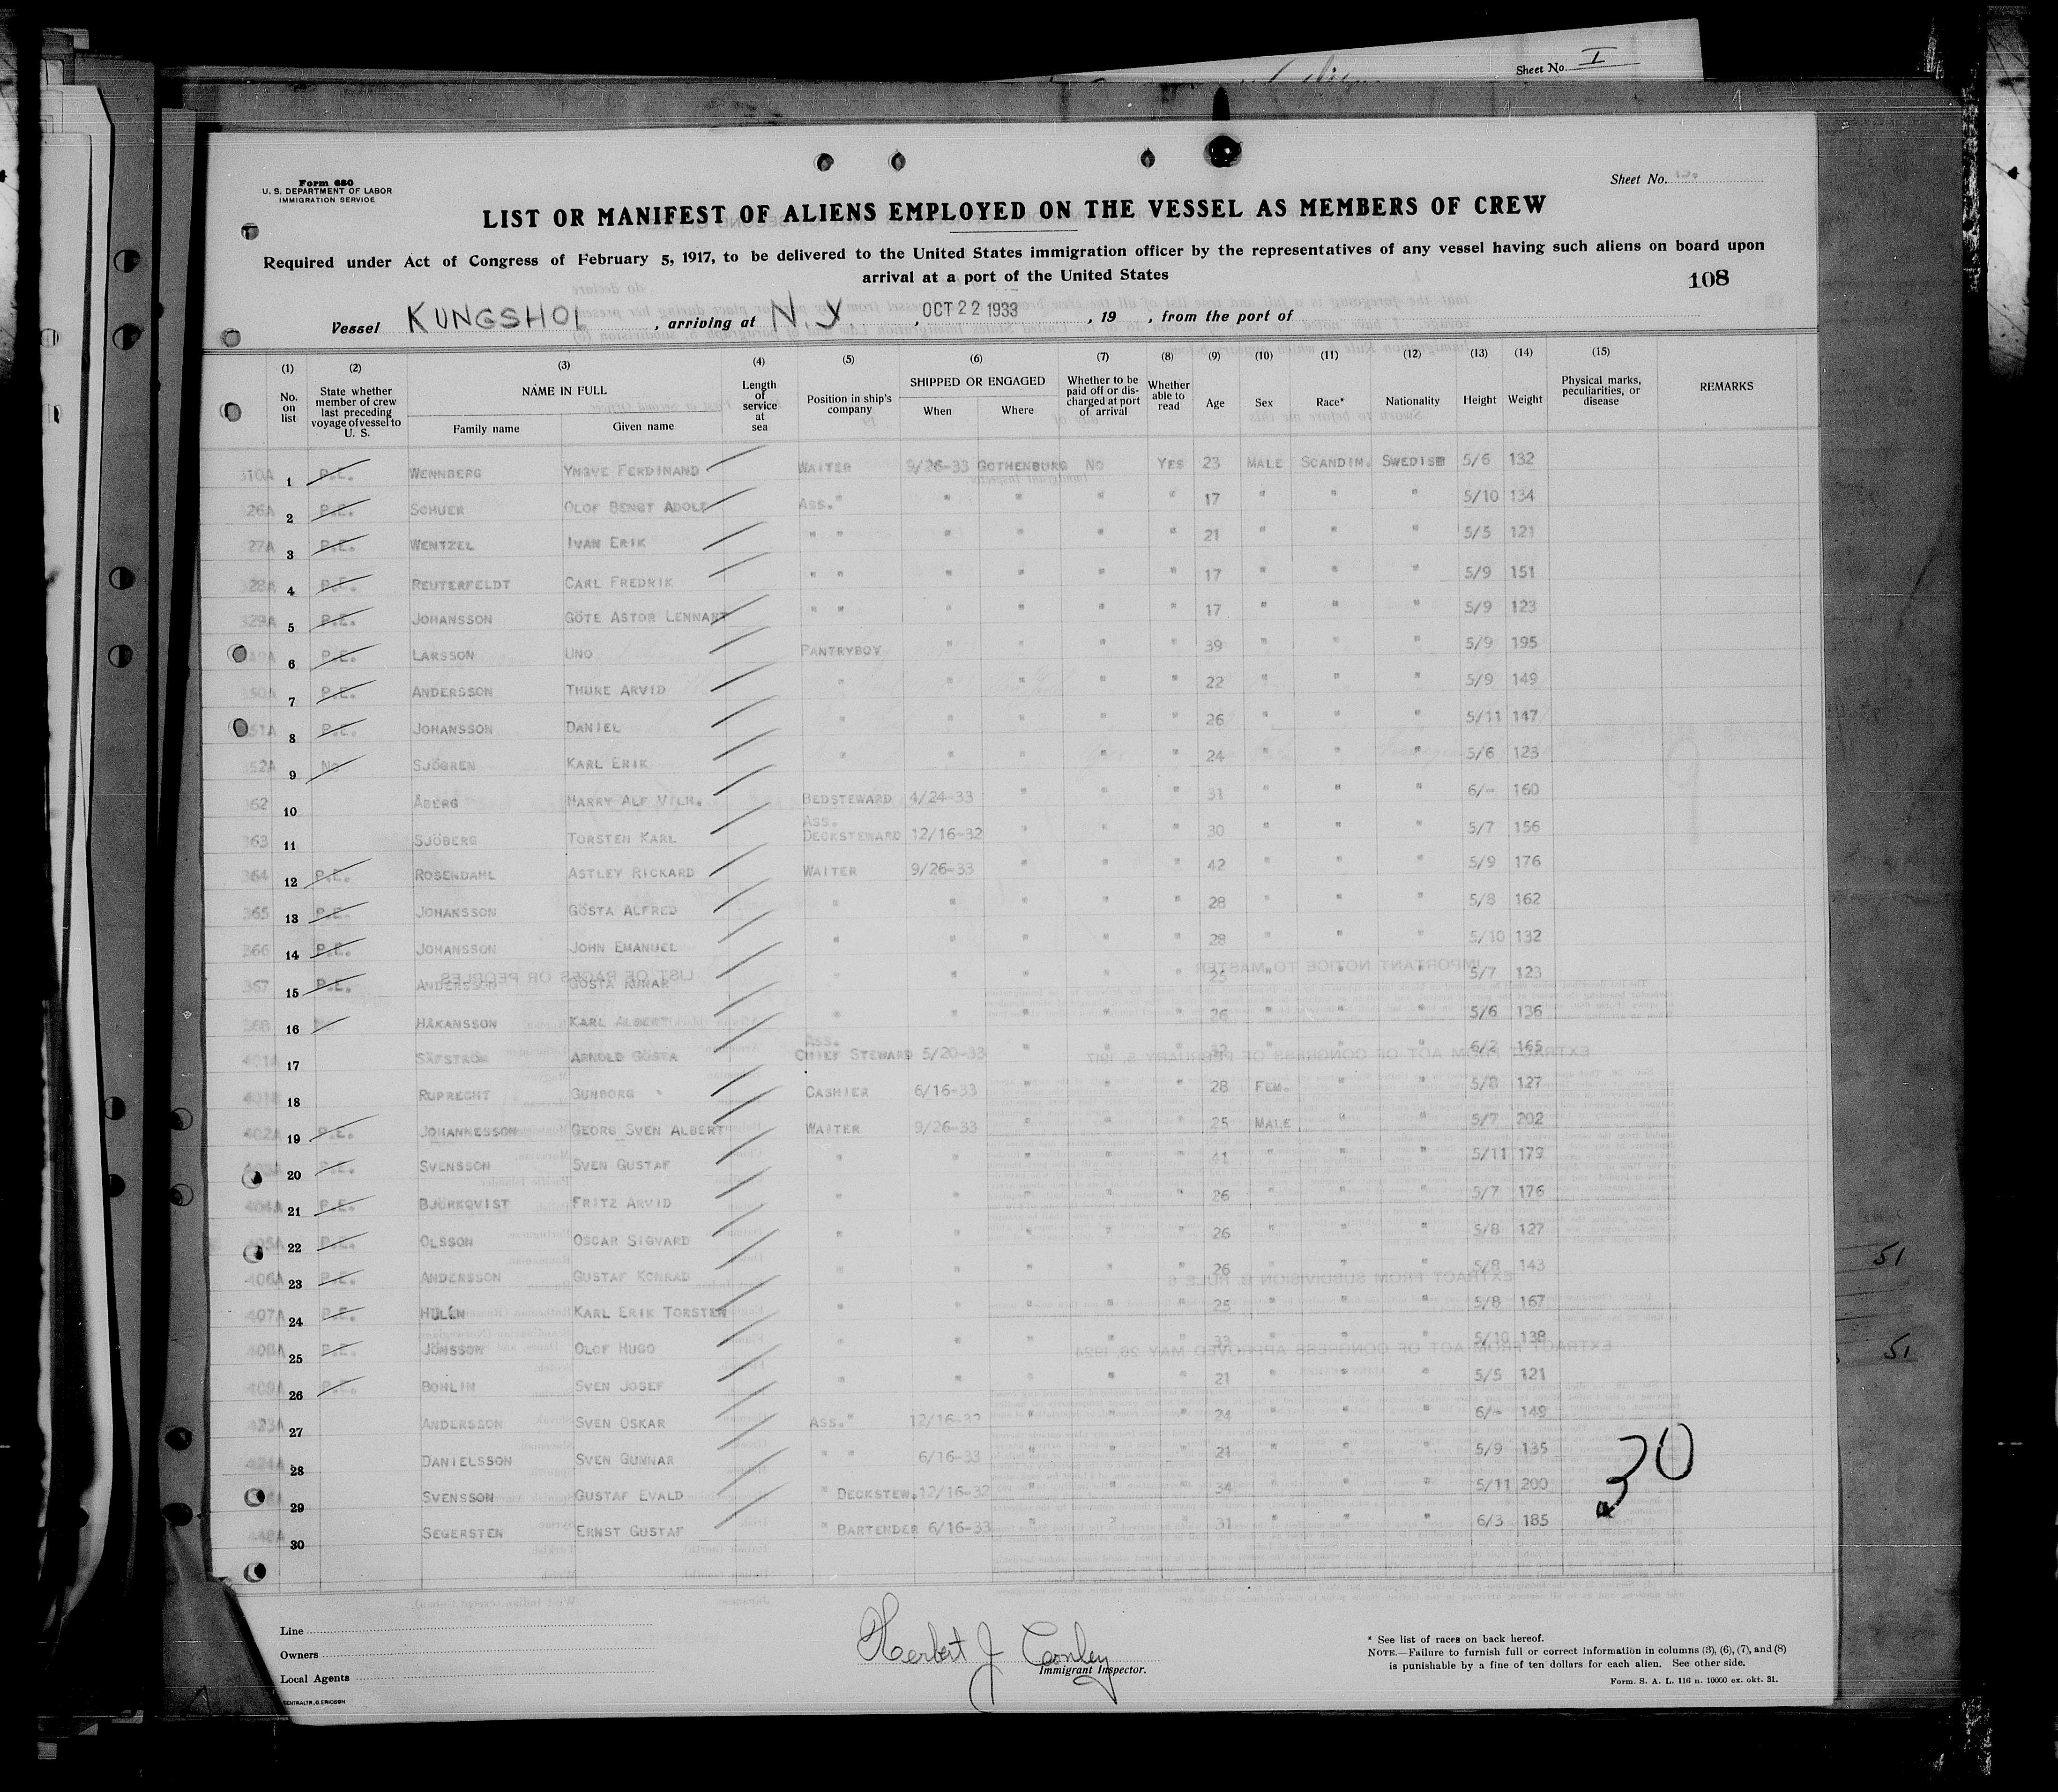 Sheet No. I
Form 680
U. S. DEPARTMENT OF LABOR
IMMIGRATION SERVICE
Sheet No.
LIST OR MANIFEST OF ALIENS EMPLOYED ON THE VESSEL AS MEMBERS OF CREW
Required under Act of Congress of February 5, 1917, to be delivered to the United States immigration officer by the representatives of any vessel having such aliens on board upon
arrival at a port of the United States
108
Vessel KUNGSHOL, arriving at N.Y, OCT 22 1933, 19 , from the port of
(1) (2) (3) (4) (5) (6) (7) (8) (9) (10) (11) (12) (13) (14) (15)
No. on list State whether member of crew last preceding voyage of vessel to U. S. NAME IN FULL Family name Given name Length of service at sea Position in ship's company SHIPPED OR ENGAGED When Where Whether to be paid off or discharged at port of arrival Whether able to read Age Sex Race* Nationality Height Weight Physical marks, peculiarities, or disease REMARKS
310A 1 P.E. WENNBERG YNGVE FERDINAND WAITER 9/26-33 GOTHENBURG NO YES 23 MALE SCANDIN. SWEDISH 5/6 132
26A 2 P.E. SCHUER OLOF BENGT ADOLF ASS. " " " " " 17 " " " 5/10 134
27A 3 P.E. WENTZEL IVAN ERIK " " " " " " 21 " " " 5/5 121
328A 4 P.E. REUTERFELDT CARL FREDRIK " " " " " " 17 " " " 5/9 151
329A 5 P.E. JOHANSSON GÖTE ASTOR LENNART " " " " " " 17 " " " 5/9 123
6 P.E. LARSSON UNO PANTRYBOY " " " " 39 " " " 5/9 195
350A 7 P.E. ANDERSSON THURE ARVID " " " " " 22 " " " 5/9 149
351A 8 P.E. JOHANSSON DANIEL " " " " " 26 " " " 5/11 147
352A 9 No SJÖGREN KARL ERIK " " " " " 24 " " " 5/6 123
362 10 ÅBERG HARRY ALF VILH. BEDSTEWARD 4/24-33 " " " 31 " " " 6/- 160
363 11 SJÖBERG TORSTEN KARL ASS. DECKSTEWARD 12/16-32 " " " 30 " " " 5/7 156
364 12 P.E. ROSENDAHL ASTLEY RICKARD WAITER 9/26-33 " " " 42 " " " 5/9 176
365 13 P.E. JOHANSSON GÖSTA ALFRED " " " " " 28 " " " 5/8 162
366 14 P.E. JOHANSSON JOHN EMANUEL " " " " " 28 " " " 5/10 132
367 15 P.E. ANDERSSON GÖSTA RUNAR " " " " " 25 " " " 5/7 123
368 16 HÅKANSSON KARL ALBERT " " " " " 26 " " " 5/6 136
401A 17 SÄFSTRÖM ARNOLD GÖSTA ASS. CHIEF STEWARD 5/20-33 " " " 32 " " " 6/2 165
18 RUPRECHT GUNBORG CASHIER 6/16-33 " " " 28 FEM. " " 5/8 127
402A 19 P.E. JOHANNESSON GEORG SVEN ALBERT WAITER 9/26-33 " " " 25 MALE " " 5/7 202
20 P.E. SVENSSON SVEN GUSTAF " " " " " 41 " " " 5/11 179
404A 21 P.E. BJÖRKQVIST FRITZ ARVID " " " " " 26 " " " 5/7 176
405A 22 P.E. OLSSON OSCAR SIGVARD " " " " " 26 " " " 5/8 127
406A 23 P.E. ANDERSSON GUSTAF KONRAD " " " " " 26 " " " 5/8 143
407A 24 P.E. HULÉN KARL ERIK TORSTEN " " " " " 25 " " " 5/8 167
408A 25 P.E. JÖNSSON OLOF HUGO " " " " " 33 " " " 5/10 138
409A 26 P.E. BOHLIN SVEN JOSEF " " " " " 21 " " " 5/5 121
423A 27 ANDERSSON SVEN OSKAR ASS. " 12/16-32 " " " 24 " " " 6/- 149
424A 28 DANIELSSON SVEN GUNNAR " " 6/16-33 " " " 21 " " " 5/9 135
29 SVENSSON GUSTAF EVALD " DECKSTEW. 12/16-32 " " " 34 " " " 5/11 200
30 SEGERSTEN ERNST GUSTAF " BARTENDER 6/16-33 " " " 31 " " " 6/3 185
30
51
51
Line
Owners
Local Agents
CENTRALTR. G. ERICSON
Herbert J Conley
Immigrant Inspector.
* See list of races on back hereof.
NOTE.—Failure to furnish full or correct information in columns (3), (6), (7), and (8)
is punishable by a fine of ten dollars for each alien. See other side.
Form. S. A. L. 116 n. 10000 ex. okt. 31.